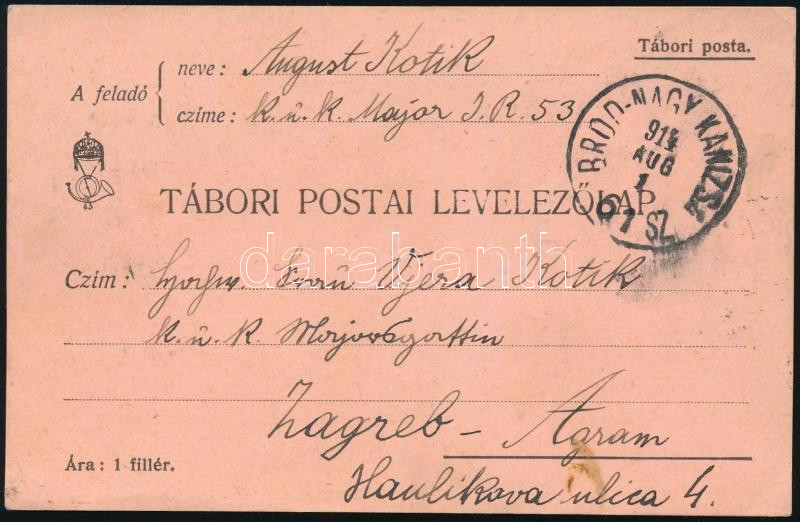 Tábori posta.
A feladó
neve: August Kotik
czíme: k. u. k. Major I. R. 53
BROD-NAGY KANIZSA
914
AUG
1
67 SZ
TÁBORI POSTAI LEVELEZŐLAP.
darabanth
Czím: Frau Vjera Kotik
k. u. k. Majorsgattin
Zagreb - Agram
Haulikova ulica 4.
Ára: 1 fillér.